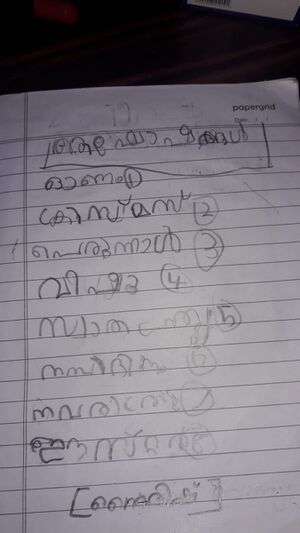 papergrid
ആഘോഷങ്ങൾ
ഓണം ①
ക്രിസ്മസ് ②
പെരുന്നാൾ ③
വിഷു ④
സ്വാതന്ത്ര്യ ⑤
നബിദിനം ⑥
നവരാത്രി ⑦
ഈസ്റ്റർ ⑧